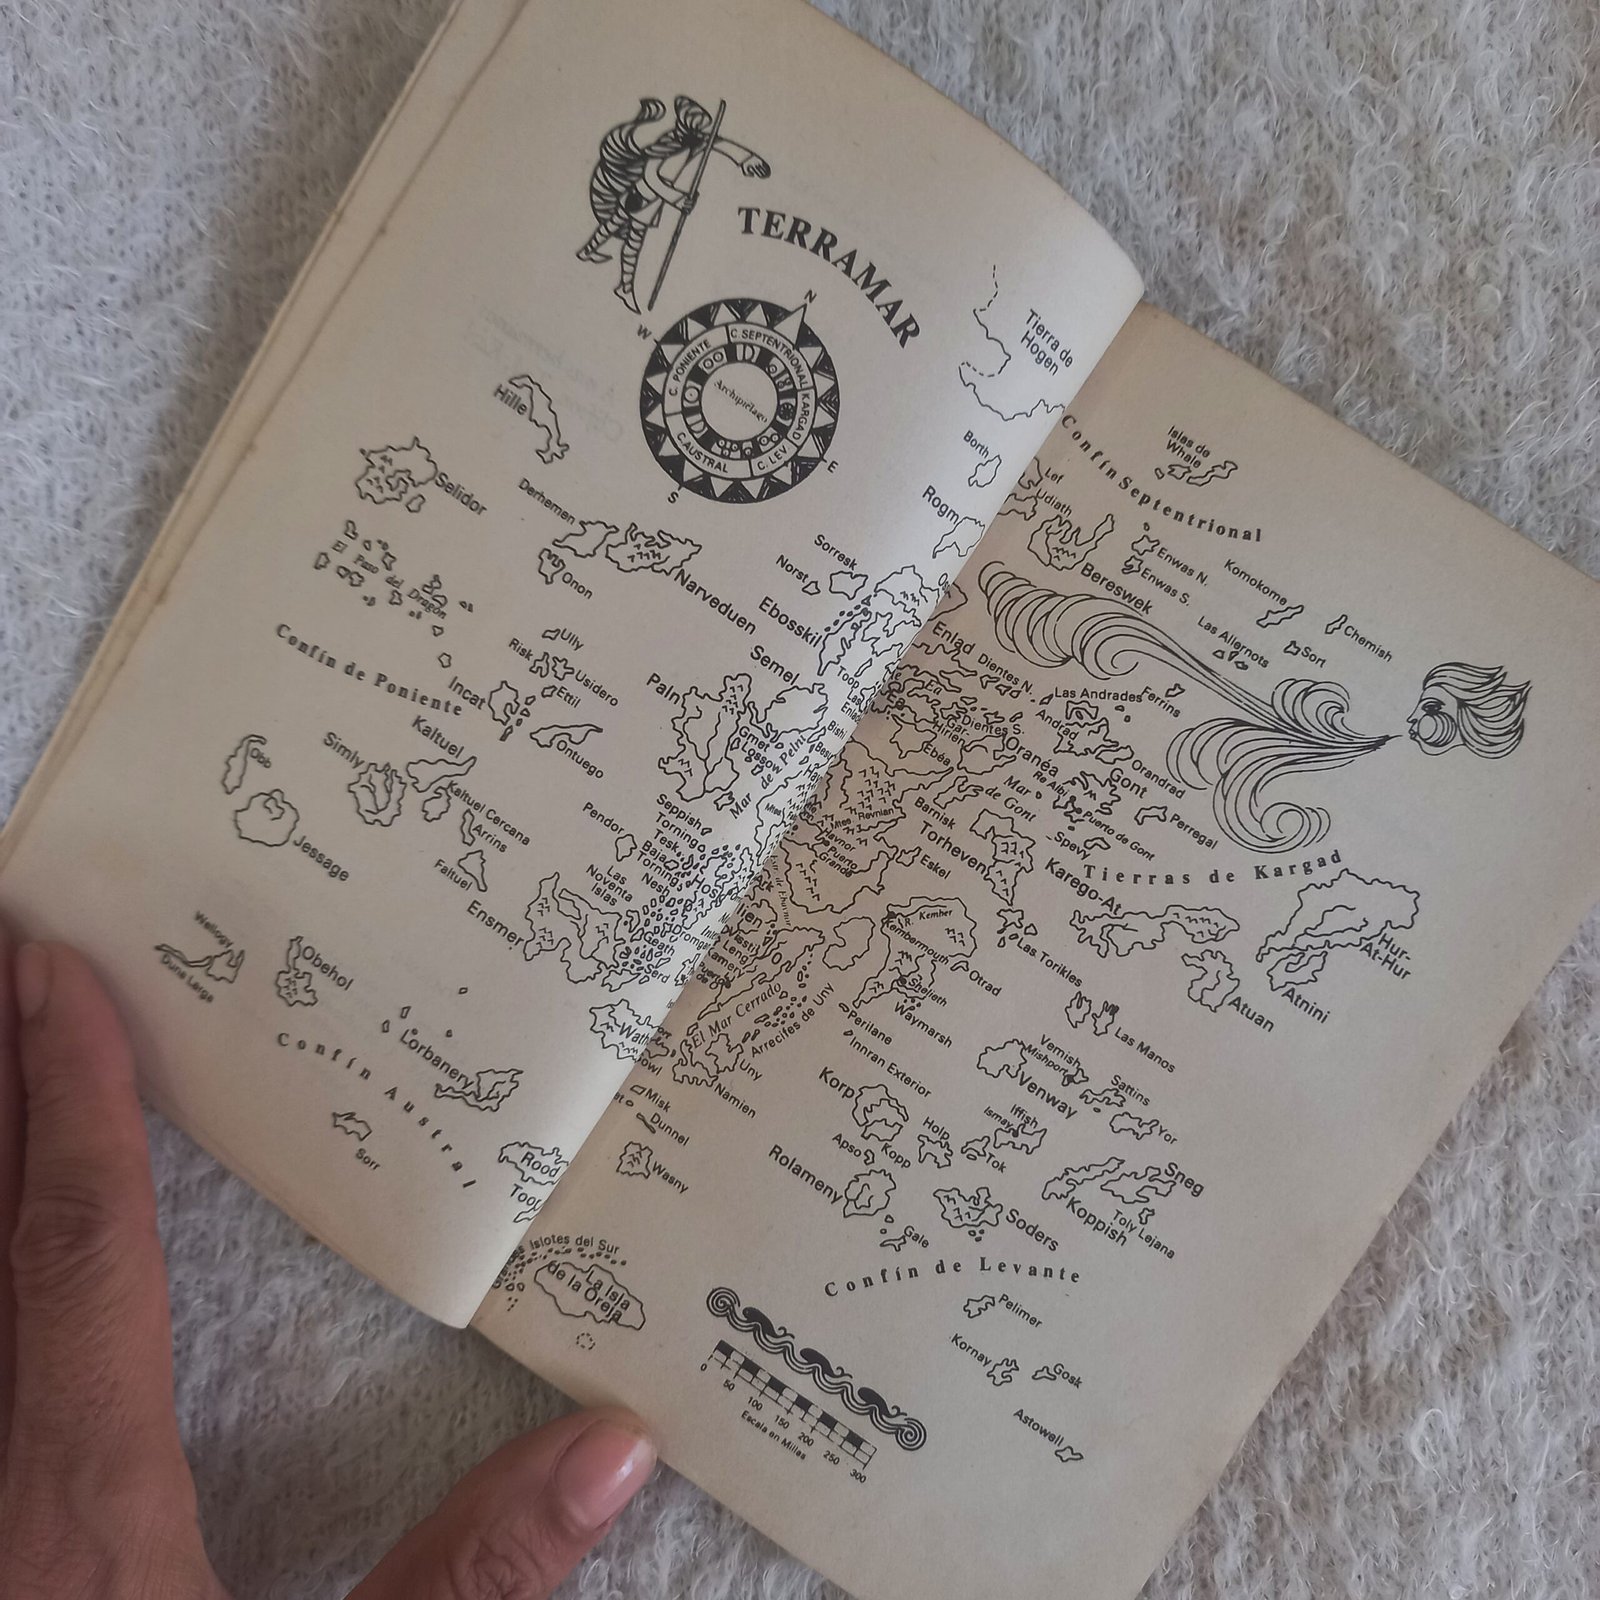 TERRAMAR
N
W
E
S
C. SEPTENTRIONAL
KARGAD
C. LEV
C. AUSTRAL
C. PONIENTE
Archipiélago
Tierra de
Hogen
Hille
Selidor
El Paso del Dragón
Derhemen
Onon
Narveduen
Borth
Rogm
Sorresk
Norst
Ebosskil
Semel
Toop
Ully
Risk
Usidero
Ettil
Incat
Ontuego
Confín de Poniente
Kaltuel
Simly
Kaltuel Cercana
Arrins
Faltuel
Obb
Jessage
Paln
Gossow
Mar de Pelni
Seppish
Torning
Tesk
Pendor
Baja
Torning
Nesh
Las
Noventa
Islas
Ensmer
Geath
Serd
Wellogy
Duna Larga
Obehol
Lorbanery
Confín Austral
Sorr
Rood
Toop
Confín Septentrional
Islas de
Whale
Lef
Udiath
Bereswek
Enwas N.
Enwas S.
Komokome
Chemish
Las Allernots
Sort
Enlad
Dientes N.
Ea
Dientes S.
Hirien
Ebéa
Las Andrades
Ferrins
Andrad
Oranéa
Orandrad
Gont
Re Albi
Mar
de Gont
Puerto de Gont
Perregal
Spevy
Barnisk
Torheven
Mtes Revnian
Havnor
Puerto
Grande
Eskel
Tierras de Kargad
Karego-At
Hur-
At-Hur
Atnini
Atuan
Las Torikles
Las Manos
R. Kember
Kembermouth
Otrad
Shelieth
Waymarsh
El Mar Cerrado
Arrecifes de Uny
Uny
Perilane
Innran Exterior
Namien
Misk
Dunnel
Wasny
Vemish
Mishport
Venway
Sattins
Yor
Korp
Kopp
Holp
Iffish
Ismay
Tok
Apso
Rolameny
Gale
Soders
Sneg
Koppish
Toly Lejana
Confín de Levante
Islotes del Sur
La Isla
de la Oreja
Pelimer
Kornay
Gosk
Astowell
0 50 100 150 200 250 300
Escala en Millas